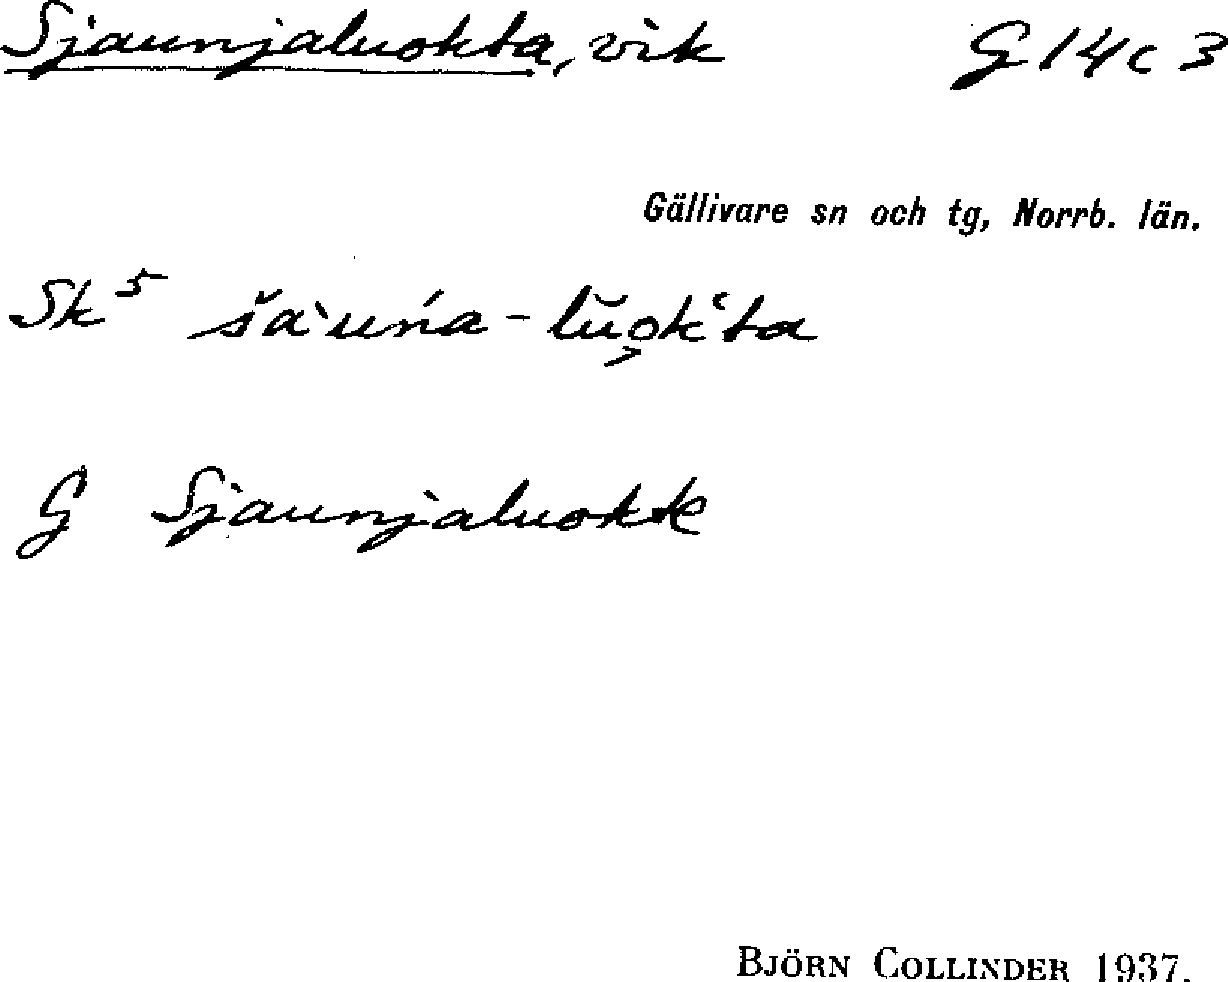 Sjaunjaluokta, vik G 14 c 3
Gällivare sn och tg, Norrb. län.
Sk⁵ šàuńa-lŭo̭kʿta
G Sjaunjaluokk
BJÖRN COLLINDER 1937.